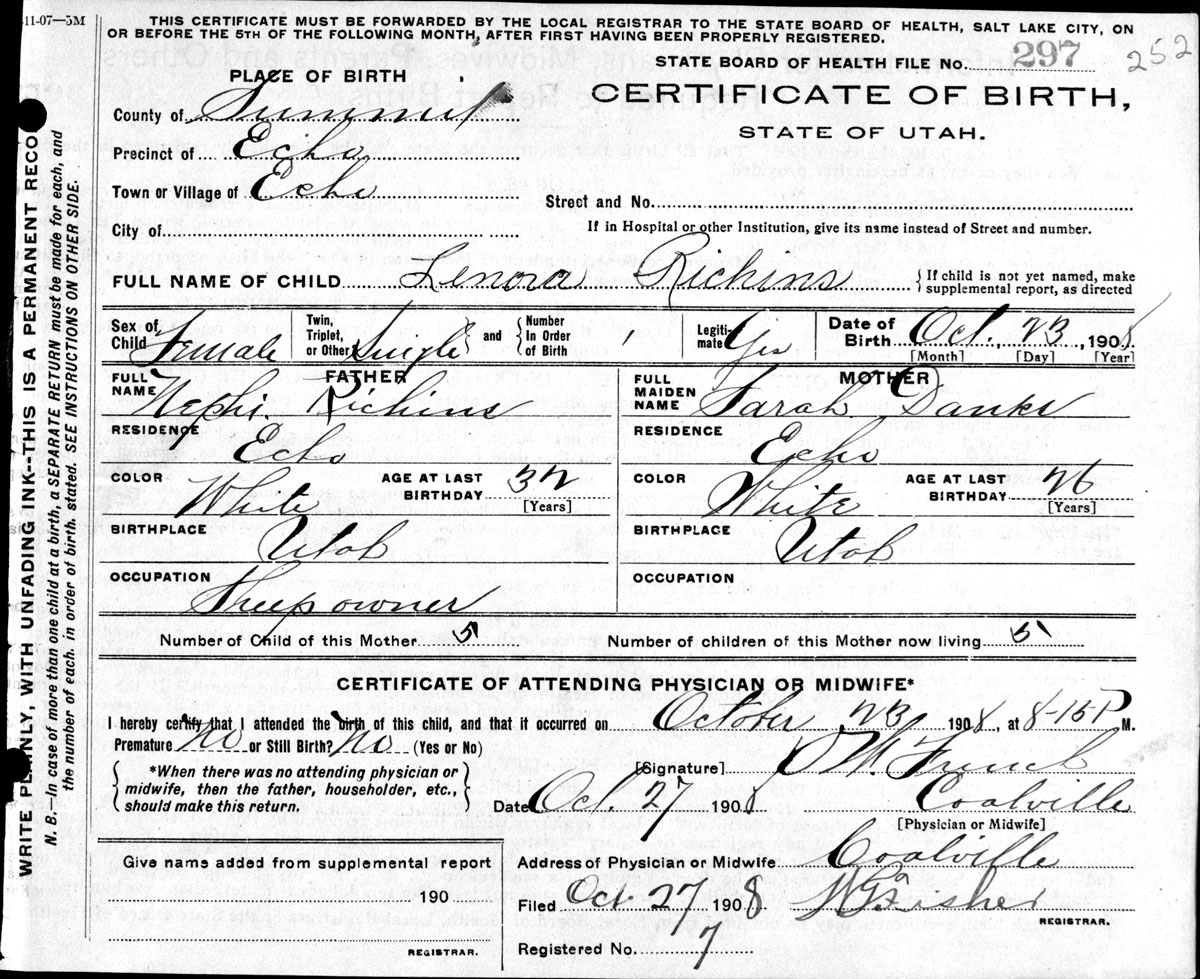 11-07—5M
THIS CERTIFICATE MUST BE FORWARDED BY THE LOCAL REGISTRAR TO THE STATE BOARD OF HEALTH, SALT LAKE CITY, ON
OR BEFORE THE 5TH OF THE FOLLOWING MONTH, AFTER FIRST HAVING BEEN PROPERLY REGISTERED.
STATE BOARD OF HEALTH FILE No. 297 252
PLACE OF BIRTH
CERTIFICATE OF BIRTH,
STATE OF UTAH.
County of Summit
Precinct of Echo
Town or Village of Echo
Street and No.
City of
If in Hospital or other Institution, give its name instead of Street and number.
FULL NAME OF CHILD Lenora Richins { If child is not yet named, make
supplemental report, as directed
Sex of Child Female Twin, Triplet, or Other Single and { Number In Order of Birth Legiti- mate Yes Date of Birth Oct. 23, 1908
[Month] [Day] [Year]
FATHER MOTHER
FULL NAME Nephi Richins FULL MAIDEN NAME Sarah Danks
RESIDENCE Echo RESIDENCE Echo
COLOR White AGE AT LAST BIRTHDAY 32 [Years] COLOR White AGE AT LAST BIRTHDAY 26 [Years]
BIRTHPLACE Utah BIRTHPLACE Utah
OCCUPATION Sheep owner OCCUPATION
Number of Child of this Mother 5 Number of children of this Mother now living 5
CERTIFICATE OF ATTENDING PHYSICIAN OR MIDWIFE*
I hereby certify that I attended the birth of this child, and that it occurred on October 23, 1908, at 8-15 P. M.
Premature No or Still Birth? No (Yes or No)
{ *When there was no attending physician or
midwife, then the father, householder, etc.,
should make this return. }
[Signature] W. French
Date Oct. 27 1908 Coalville
[Physician or Midwife]
Give name added from supplemental report
190
REGISTRAR.
Address of Physician or Midwife Coalville
Filed Oct 27 1908 Fisher
REGISTRAR.
Registered No. 7
WRITE PLAINLY, WITH UNFADING INK--THIS IS A PERMANENT RECO
N. B.—In case of more than one child at a birth, a SEPARATE RETURN must be made for each, and
the number of each, in order of birth, stated. SEE INSTRUCTIONS ON OTHER SIDE.